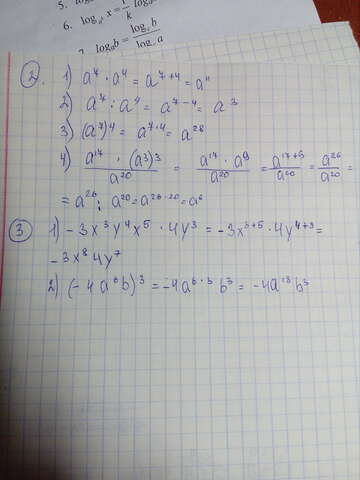 6. logₐᵏ x = 1/k logₐ
7. logₐb = log꜀b / log꜀a
② 1) a⁷ · a⁴ = a⁷⁺⁴ = a¹¹
2) a⁷ : a⁴ = a⁷⁻⁴ = a³
3) (a⁷)⁴ = a⁷·⁴ = a²⁸
4) a¹⁷ · (a³)³ / a²⁰ = a¹⁷ · a⁹ / a²⁰ = a¹⁷⁺⁹ / a²⁰ = a²⁶ / a²⁰ =
= a²⁶ : a²⁰ = a²⁶⁻²⁰ = a⁶
③ 1) -3x³y⁴x⁵ · 4y³ = -3x³⁺⁵ · 4y⁴⁺³ =
-3x⁸4y⁷
2) (-4a⁶b)³ = -4a⁶·³b³ = -4a¹⁸b³